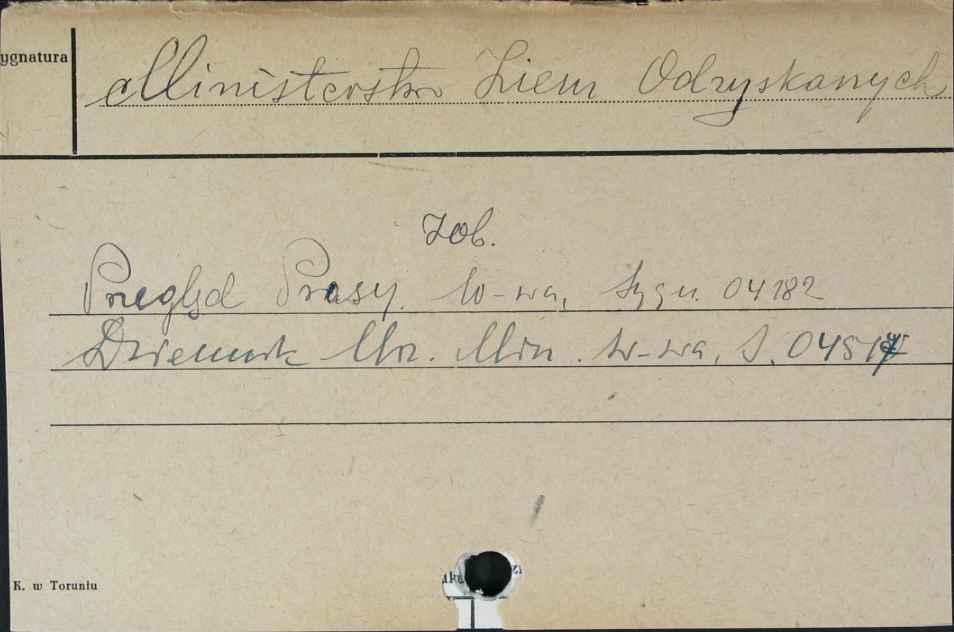 ygnatura
Ministerstwo Ziem Odzyskanych
Zob.
Przegląd Prasy. W-wa, Sygn. 04182
Dziennik Urz. Min. W-wa, S. 04517
K. w Toruniu